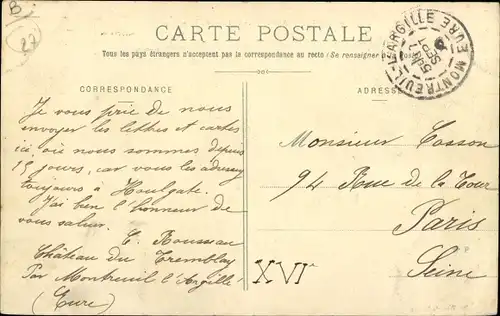 B
27
CARTE POSTALE
Tous les pays étrangers n'acceptent pas la correspondance au recto (Se renseigner
CORRESPONDANCE
ADRESSE
MONTREUIL-L'ARGILLE EURE
SEPT
Je vous prie de nous
envoyer les lettres et cartes
ici où nous sommes depuis
15 jours, car vous les adressez
toujours à Houlgate.
J'ai bien l'honneur de
vous saluer.
C. Rousseau
Château du Tremblay
Par Montreuil l'Argillé
(Eure)
Monsieur Cosson
94 Rue de la Tour
Paris
XVI
Seine